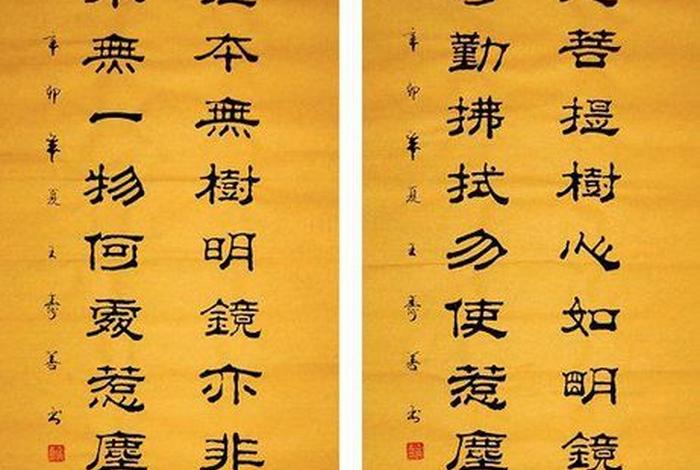 菩提樹心如明鏡
勤拂拭勿使惹塵
辛卯年夏王壽善书
本無樹明鏡亦非
無一物何處惹塵
辛卯年夏王壽善书